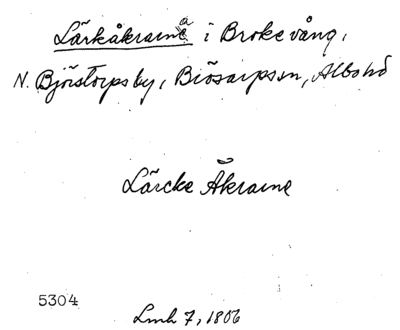 Lärkåkrarna i Brokevång,
N. Björstorps by, Brösarps sn, Albo hd
Lärcke Åkrarne
5304
Lmh 7, 1806